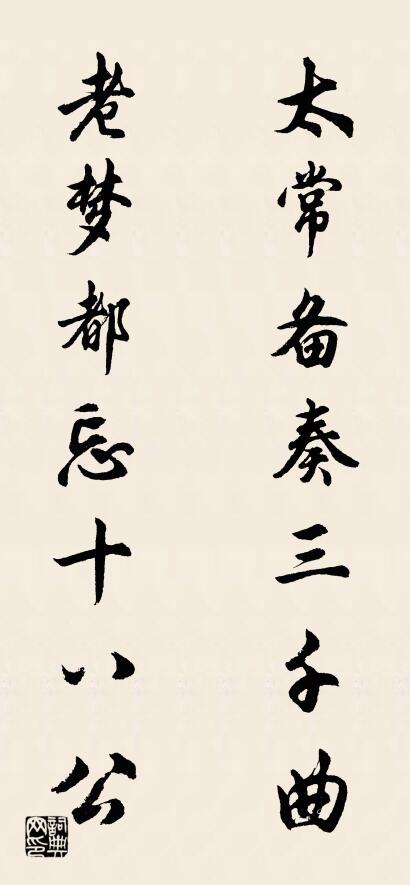 太常备奏三千曲
老梦都忘十八公
詞典網印